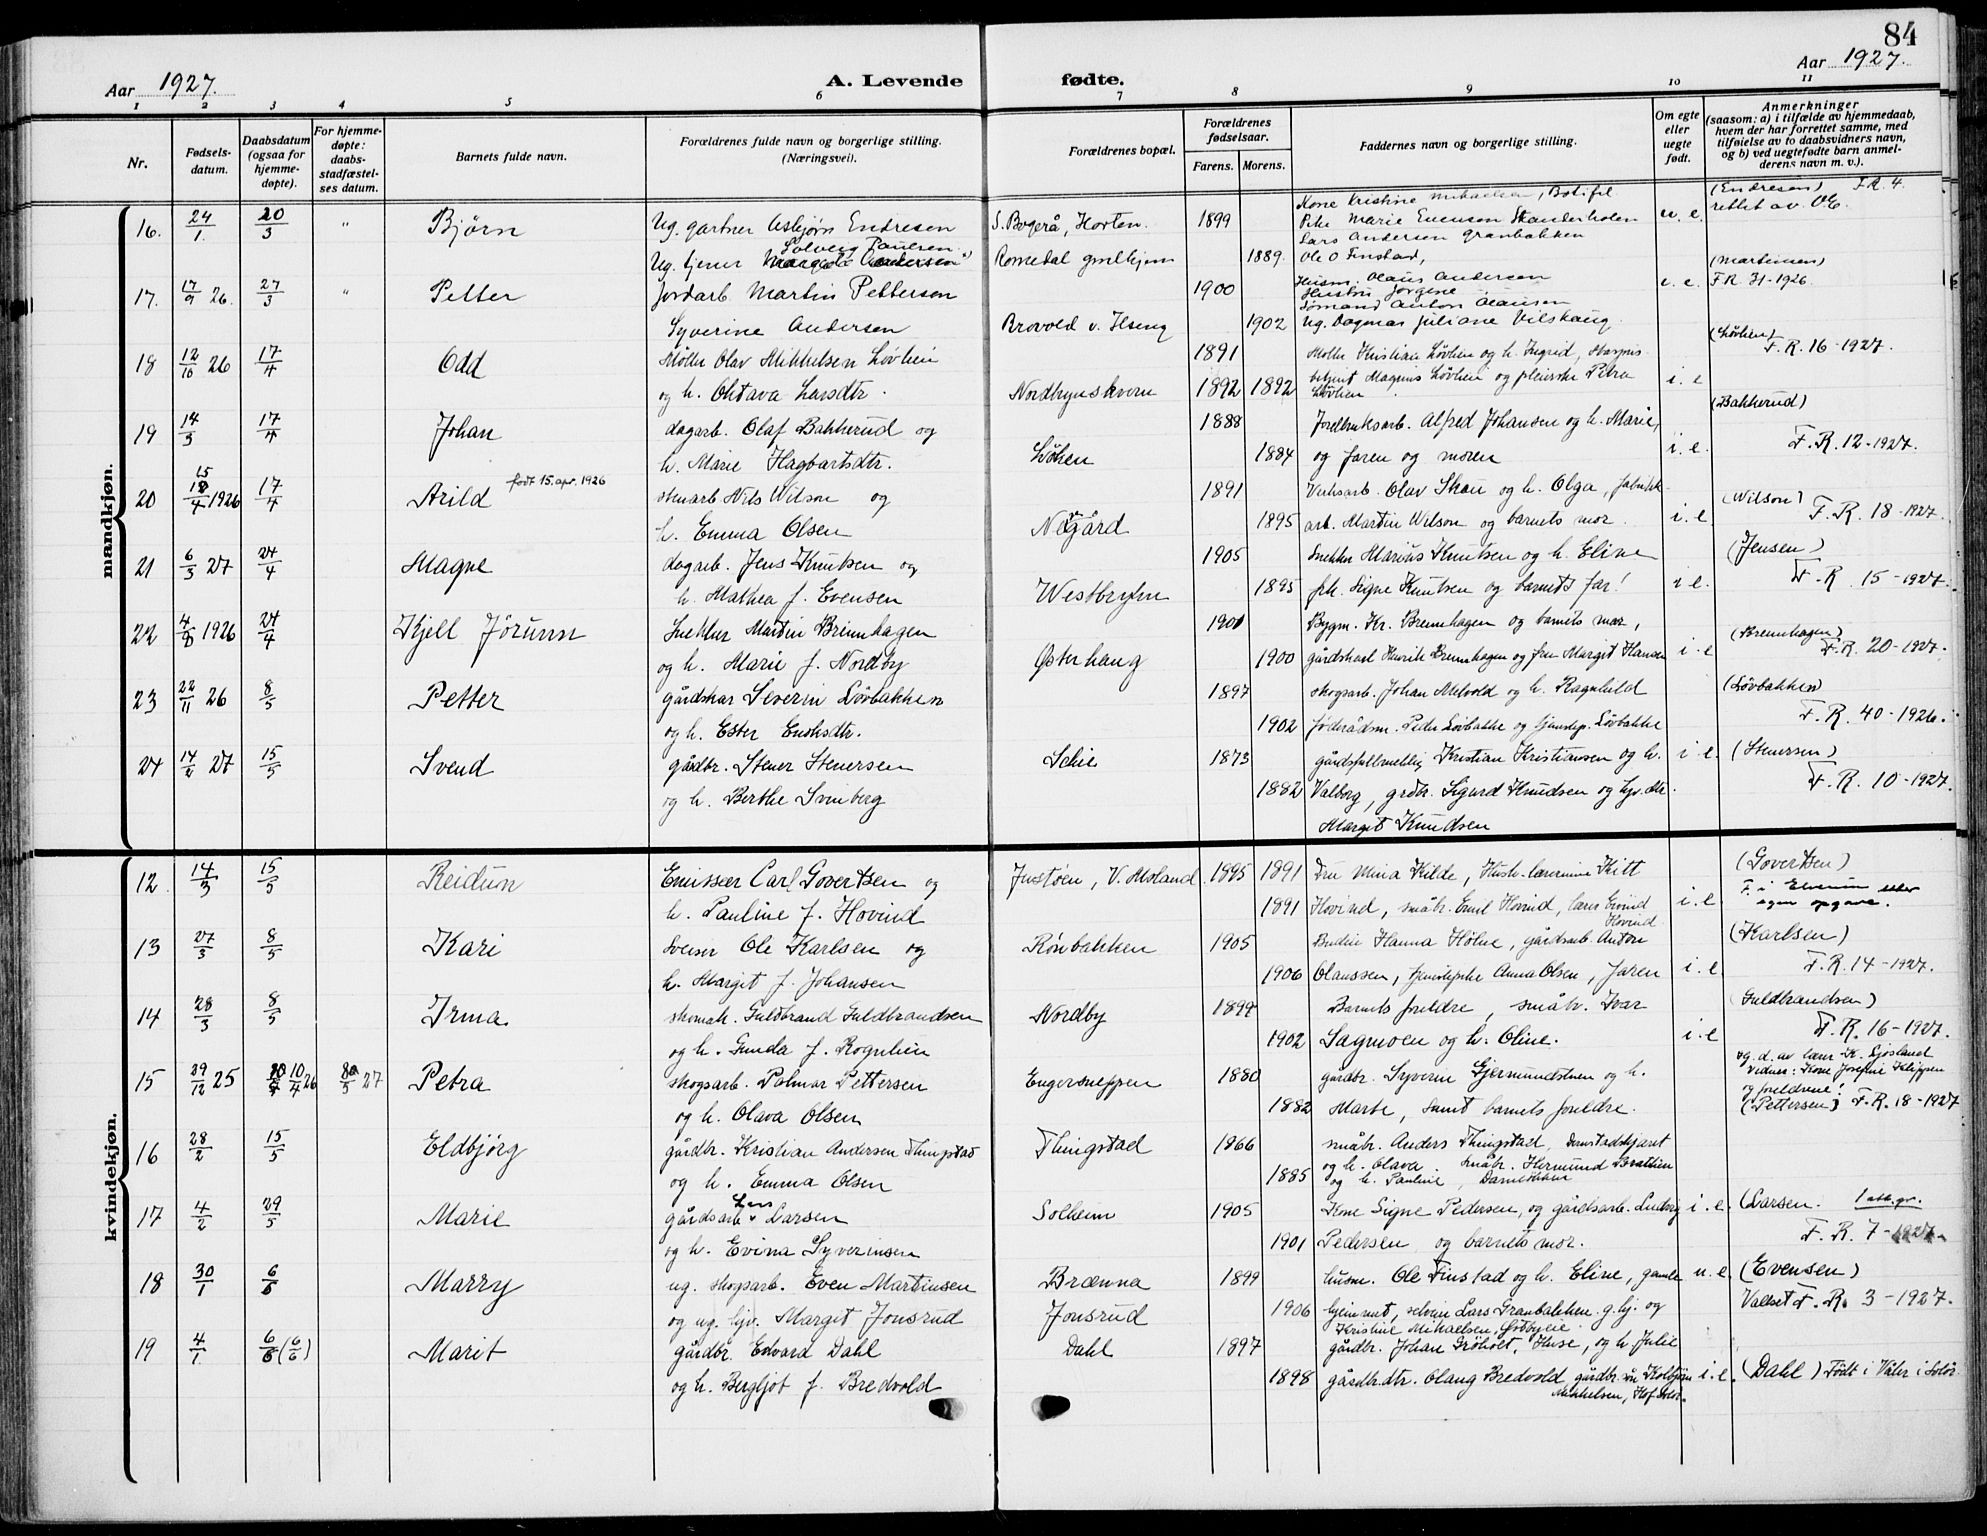 84
Aar 1927.
A. Levende
fødte.
Aar 1927.
1 2 3 4 5 6 7 8 9 10 11
Nr.
Fødsels-datum.
Daabsdatum (ogsaa for hjemme-døpte).
For hjemme-døpte: daabs-stadfæstel-ses datum.
Barnets fulde navn.
Forældrenes fulde navn og borgerlige stilling. (Næringsvei).
Forældrenes bopæl.
Forældrenes fødselsaar.
Farens. Morens.
Faddernes navn og borgerlige stilling.
Om egte eller uegte født.
Anmerkninger (saasom: a) i tilfælde av hjemmedaab, hvem der har forrettet samme, med tilføielse av to daabsvidners navn, og b) ved uegtefødte barn anmel-derens navn m. v.).
mandkjøn.
Kone Kristine Mikaelsen, (Endresen) F.R. 4.
16. 24/1. 20/3 " Bjørn Ug. gartner Asbjørn Endresen S. Bogerå, Horten. 1899 Pike Marie Evenson u. e. rettet av
Solveig Paulsen Lars Andersen Granbakken
Ug. tjener Romedal gmlhjem 1889. Ole O Finstad, (Martinsen)
17. 17/9 26. 27/3 " Petter Jordarb. Martin Petterson 1900 Husm. Olaus Andersen F.R. 31-1926.
Hustru Jørgine
Syverine Andersen Brovold v. Ilseng 1902 Ug. Dagmar Juliane Vilskaug (Løvlien)
18 12/10 26 17/4 Odd Møller Olav Mikkelsen Løvlien 1891 Møller Kristian Løvlien og h. Ingrid, F.R. 16-1927.
og h. Oktava Larsdtr. Nordbynskvern 1892 1892 betjent Magnus Løvlien og pleierske Petra Løvlien i. e (Bakkerud)
19 14/3 17/4 Johan dagarb. Olaf Bakkerud og 1888 Jordbruksarb. Alfred Johansen og h. Marie, F.R. 12-1927.
h. Marie Hagbartsdtr. Løken 1884 og faren og moren i. e.
20 15/4 1926 17/4 Arild født 15. apr. 1926 stenarb Nils Wilson og 1891 Verksarb. Olav Skau og h. Olga, fabrikk- (Wilson)
h. Emma Olsen Nygård 1895 arb. Martin Wilson og barnets mor. i. e. F.R. 18-1927.
21 6/3 27 24/4 Magne dagarb. Jens Knutsen og 1905 Snekker Marius Knutsen og h. Eline (Jensen)
h. Mathea f. Evensen Westbyhn 1895 frk. Signe Knutsen og barnets far! i e. F.R. 15-1927.
22 1926 24/4 Kjell Jörunn Snekker Martin Brennhagen 1901 Bygm. Kr. Brennhagen og barnets mor, (Brennhagen)
og h. Marie f. Nordby Østerhaug 1900 gårdskarl Henrik Brennhagen og fru Margit Hansen i. e F.R. 20-1927.
23 22/11 26 8/5 Petter gårdskar Severin Løvbakken 1897 skogsarb. Johan Melvold og h. Ragnhild (Løvbakken)
og h. Ester Enoksdtr. 1902 føderådsm. Peder Løvbakke og tjenstep. Løvbakke F.R. 40-1926.
24 14/2 27 15/5 Svend gårdbr. Stener Stenersen Schie 1873 gårdsfullmektig Kristian Kristiansen og h. i e. (Stenersen)
og h. Berthe Svinberg 1882 Valborg, grdbr. Sigurd Knudsen og hjv. dtr. F.R. 10-1927.
Margit Knudsen
kvindekjøn.
12. 14/3 15/5 Reidun Emissær Carl Govertsen og Justøen, V. Moland 1895 1891 Fru Mina Kilde, Hush. lærerinne Kitt (Govertsen)
h. Pauline f. Hovind 1891 Hovind, småbr. Emil Hovind, lærer Eivind Hovind i. e. F. i Elverum etter egen opgave.
13 27/3 8/5 Kari Sveiser Ole Karlsen og Rönbakken 1905 Budeie Hanna Holne, gårdsarb. Anton (Karlsen)
h. Margit f. Johansen 1906 Olaussen, tjenestepike Anna Olsen, faren i. e F.R. 14-1927.
14 28/3 8/5 Irma skomak. Guldbrand Guldbrandsen Nordby 1899 Barnets foreldre, småbr. Ivar (Guldbrandsen)
og h. Gunda f. Rognlien 1902 Sagmoen og h. Oline. i e F.R. 16-1927.
15 29/12 25 10/4 26 8/5 27 Petra skogsarb. Palmar Pettersen Engersneppen 1880 gårdbr. Syverin Gjermundshen og h. og d. av lærer K. Sjøsland
Vidner: Kone Josefine Kleppen
og h. Olava Olsen 1882 Marte, samt barnets foreldre. og foreldrene! (Pettersen) F.R. 18-1927
16 28/2 15/5 Eldbjörg gårdbr. Kristian Andersen Thingstad Thingstad 1866 småbr. Anders Thingstad,
og h. Emma Olsen 1885 og h. Olava. Småbr. Hermund Bratlien og h. Pauline,
17 4/2 29/5 Marie gårdsarb. Lars Larsen Solheim 1905 Kone Signe Pedersen, og gårdsarb. Ludvig i. e. (Larsen.
og h. Evina Syverinsen 1901 Pedersen og barnets mor. F.R. 7-1927.
18 30/1 6/6 Marry ug. skogsarb. Even Martinsen Brænna 1899 husm. Ole Finstad og h. Eline, gamle u. e. (Evensen)
og ug. hjv. Margit Jonsrud Jonsrud 1906 hjemmet, selveier Lars Granbakken g. hj. og Vallset F.R. 3-1927.
Kristine Mikaelsen,
19 4/1. 6/6 (6/6) Marit gårdbr. Edvard Dahl Dahl 1897 gårdbr. Johan Gröholt, Huse, og h. Julie
og h. Bergljot f. Bredvold 1898 gårdbr.dtr. Olaug Bredvold gårdbr. Kolbjørn Mikkelsen, Hof Solør. i. e. (Dahl) Födt i Våler i Solör.